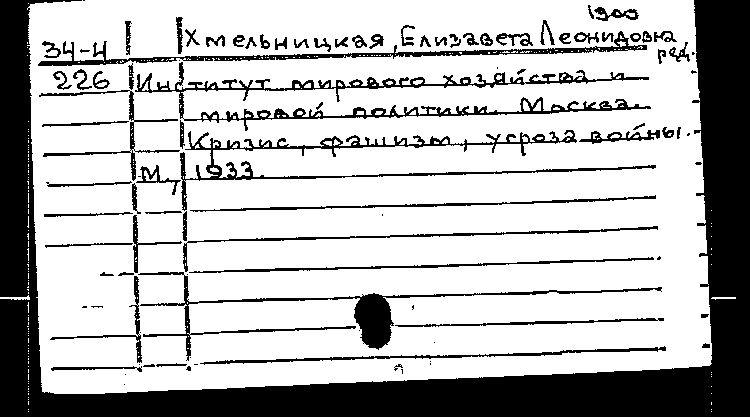 1900
34-4 Хмельницкая, Елизавета Леонидовна ред.
226 Институт мирового хозяйства и
мировой политики. Москва.
Кризис, фашизм, угроза войны.-
М., 1933.